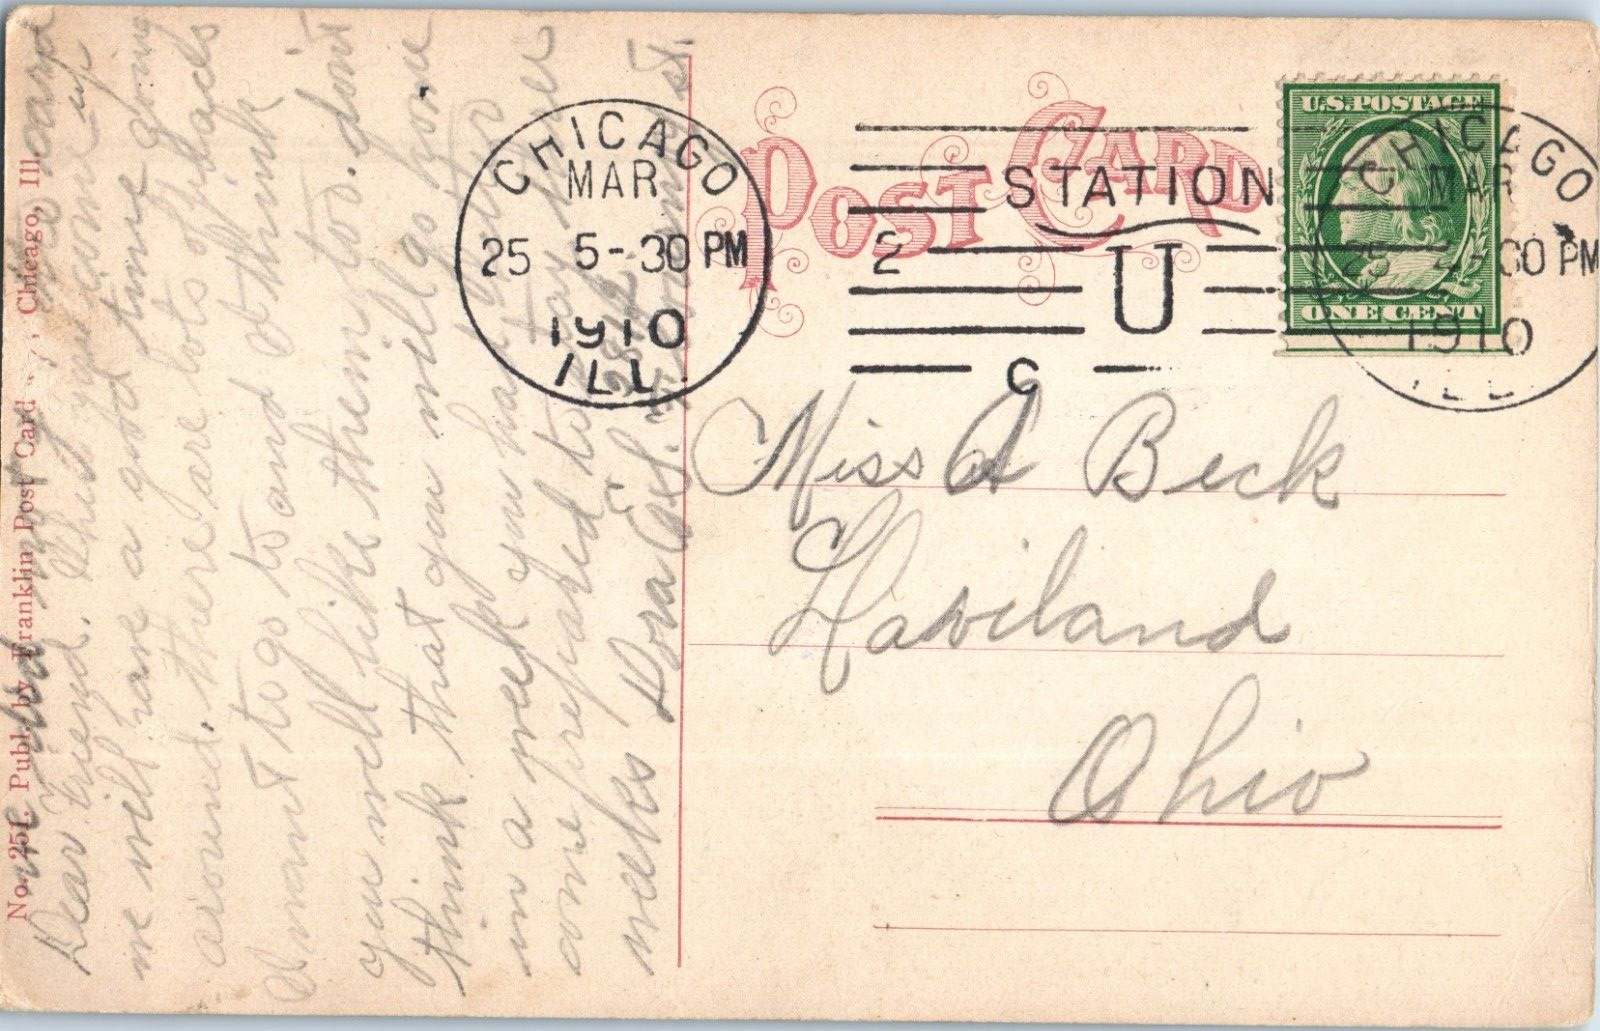 No. 251. Publ. by Franklin Post Card Chicago, Ill.
Dear Friend. This you come up
we will have a good time going
around. there are lots of places
I want to go to and I think
you will like them to too. don't
think that you will go home
in a week you have got to
come prepared to stay three
weeks Dora
POST CARD
CHICAGO
MAR
25 5-30 PM
1910
ILL.
STATION
2
U
C
U.S. POSTAGE
ONE CENT
CHICAGO
MAR
25 30 PM
1910
ILL
Miss A Beck
Haviland
Ohio